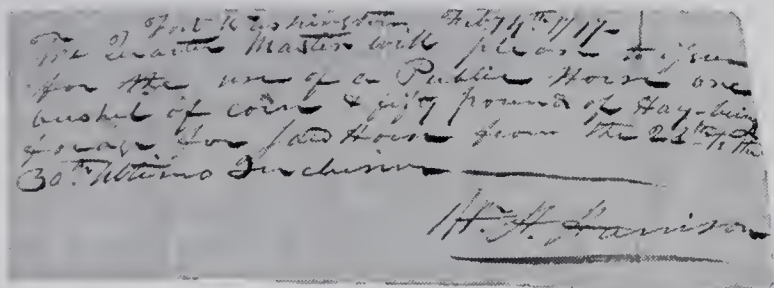 Fort Washington Feby 4th 1797
The Quarter Master will please to issue
for the use of a Public Horse one
bushel of corn & fifty pounds of Hay being
forage for said Horse from the 23d to the
30th Ultimo Inclusive
Wm. H. Harrison